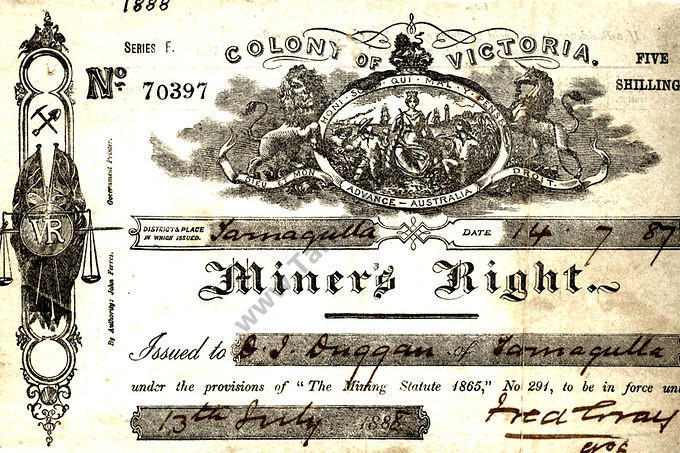 1888
SERIES F.
COLONY OF VICTORIA.
FIVE
No. 70397
SHILLING
HONI SOIT QUI MAL Y PENSE
DIEU ET MON DROIT.
ADVANCE - AUSTRALIA
DISTRICT & PLACE
IN WHICH ISSUED.
Tarnagulla
DATE 14 . 7 87
VR
By Authority: John Ferres, Government Printer.
Miner's Right.
Issued to
J. Duggan of Tarnagulla
under the provisions of "The Mining Statute 1865," No 291, to be in force un
13th July 1888
Fred
www.Ta